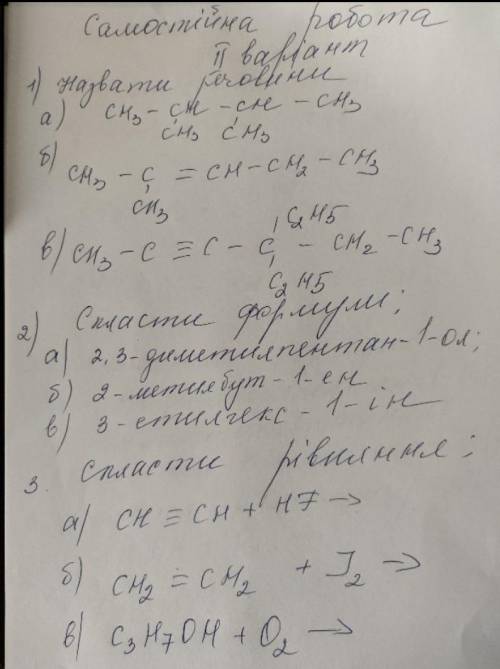 Самостійна робота
II варіант
1) Назвати речовини
а) CH3 - CH - CH - CH3
CH3 CH3
б)
CH3 - C = CH - CH2 - CH3
CH3
C2H5
в) CH3 - C ≡ C - C - CH2 - CH3
C2H5
2) Скласти формули;
а) 2,3-диметилпентан-1-ол;
б) 2-метилбут-1-ен
в) 3-етилгекс-1-ін
3. Скласти рівняння;
а) CH ≡ CH + H7 →
б) CH2 = CH2 + J2 →
в) C3H7OH + O2 →